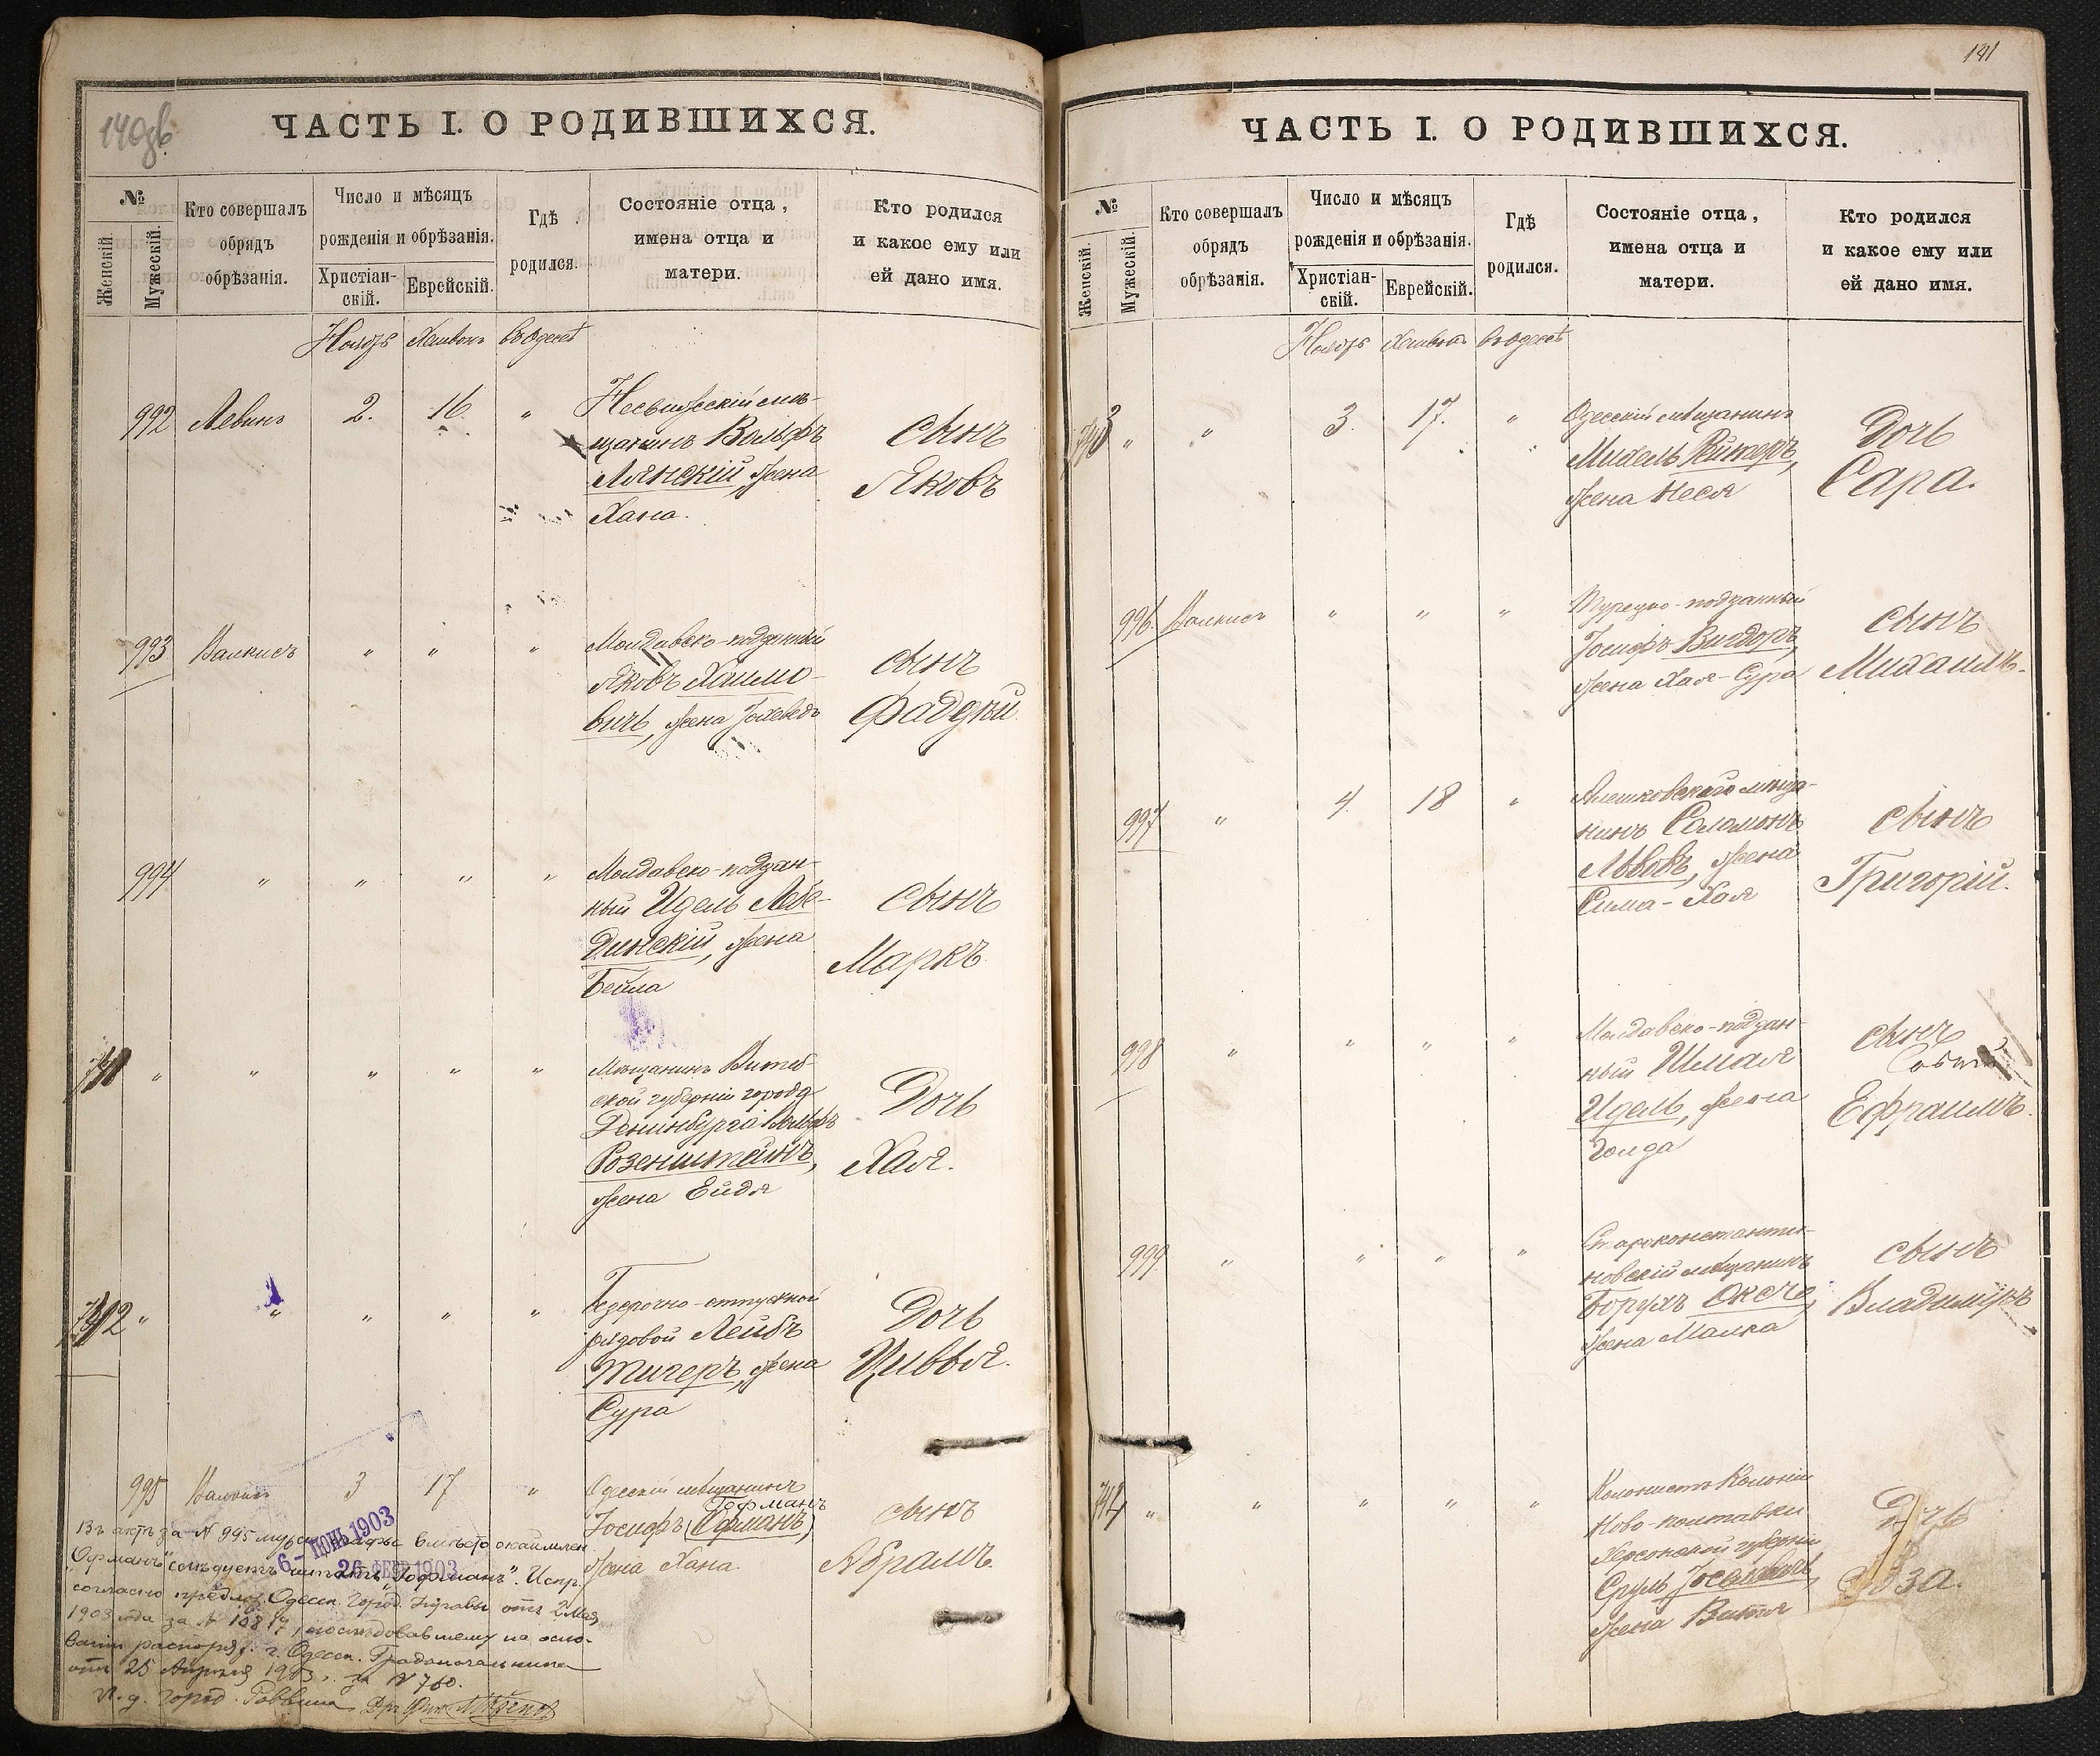 140об
ЧАСТЬ I. О РОДИВШИХСЯ.
№
Женскій.
Мужескій.
Кто совершалъ
обрядъ
обрѣзанія.
Число и мѣсяцъ
рожденія и обрѣзанія.
Христіан-
скій.
Еврейскій.
Гдѣ
родился.
Состояніе отца,
имена отца и
матери.
Кто родился
и какое ему или
ей дано имя.
Ноябрь Хешвонъ въ Одессѣ
992 Левинъ 2. 16. "
Несвижскій мѣ-
щанинъ Вольфъ
Лянскій, жена
Хана.
сынъ
Яковъ
993 Валкисъ " " "
Молдавско-подданный
Яковъ Хаимо-
вичъ, жена Іохеведъ
сынъ
Фаддей
994 " " " "
Молдавско-поддан-
ный Идель Лебе-
динскій, жена
Бейла
сынъ
Маркъ
" " " " "
Мѣщанинъ Витеб-
ской губерніи города
Денинбурга Вольфъ
Розенштейнъ,
жена Ейдя
Дочь
Хая.
" " " " "
Безсрочно-отпускной
рядовой Лейбъ
Тигеръ, жена
Сура
Дочь
Цивья.
995 Валкисъ 3 17 "
Одесскій мѣщанинъ
Гофманъ
Іосифъ (Офманъ)
жена Хана.
сынъ
Абрамъ.
Въ актѣ за № 995 муж. графѣ вмѣсто окаймлен.
"Офманъ" слѣдуетъ читать "Гофманъ". Испр.
согласно предлож. Одесск. Город. Управы отъ 2 Мая
1903 года за № 10817, послѣдовавшему на осно-
ваніи распоряж. г. Одесск. Градоначальника
отъ 25 Апрѣля 1903 г. за № 760.
И. д. город. Раввина
6 - ІЮНЬ 1903
26 ФЕВ 1903
141
ЧАСТЬ I. О РОДИВШИХСЯ.
№
Женскій.
Мужескій.
Кто совершалъ
обрядъ
обрѣзанія.
Число и мѣсяцъ
рожденія и обрѣзанія.
Христіан-
скій.
Еврейскій.
Гдѣ
родился.
Состояніе отца,
имена отца и
матери.
Кто родился
и какое ему или
ей дано имя.
Ноябрь Хешвонъ въ Одессѣ
" " 3. 17. "
Одесскій мѣщанинъ
Михель Рейтеръ,
жена Неся
Дочь
Сара.
996. Валкисъ " " "
Турецко-подданный
Іосифъ Вигдоръ,
жена Хая-Сура
сынъ
Михаилъ.
997 " 4. 18 "
Алешковскаго мѣща-
нинъ Соломонъ
Львовъ, жена
Сима-Хая
сынъ
Григорій.
998 " " " "
Молдавско-поддан-
ный Шмая
Идель, жена
Голда
сынъ
Ефраимъ.
999 " " " "
Староконстанти-
новскій мѣщанинъ
Борухъ Оксъ,
жена Малка
сынъ
Владиміръ
" " " " "
Колонистъ Колоніи
Ново-полтавки
Херсонской губерніи
Сруль
жена
Дочь
Роза.